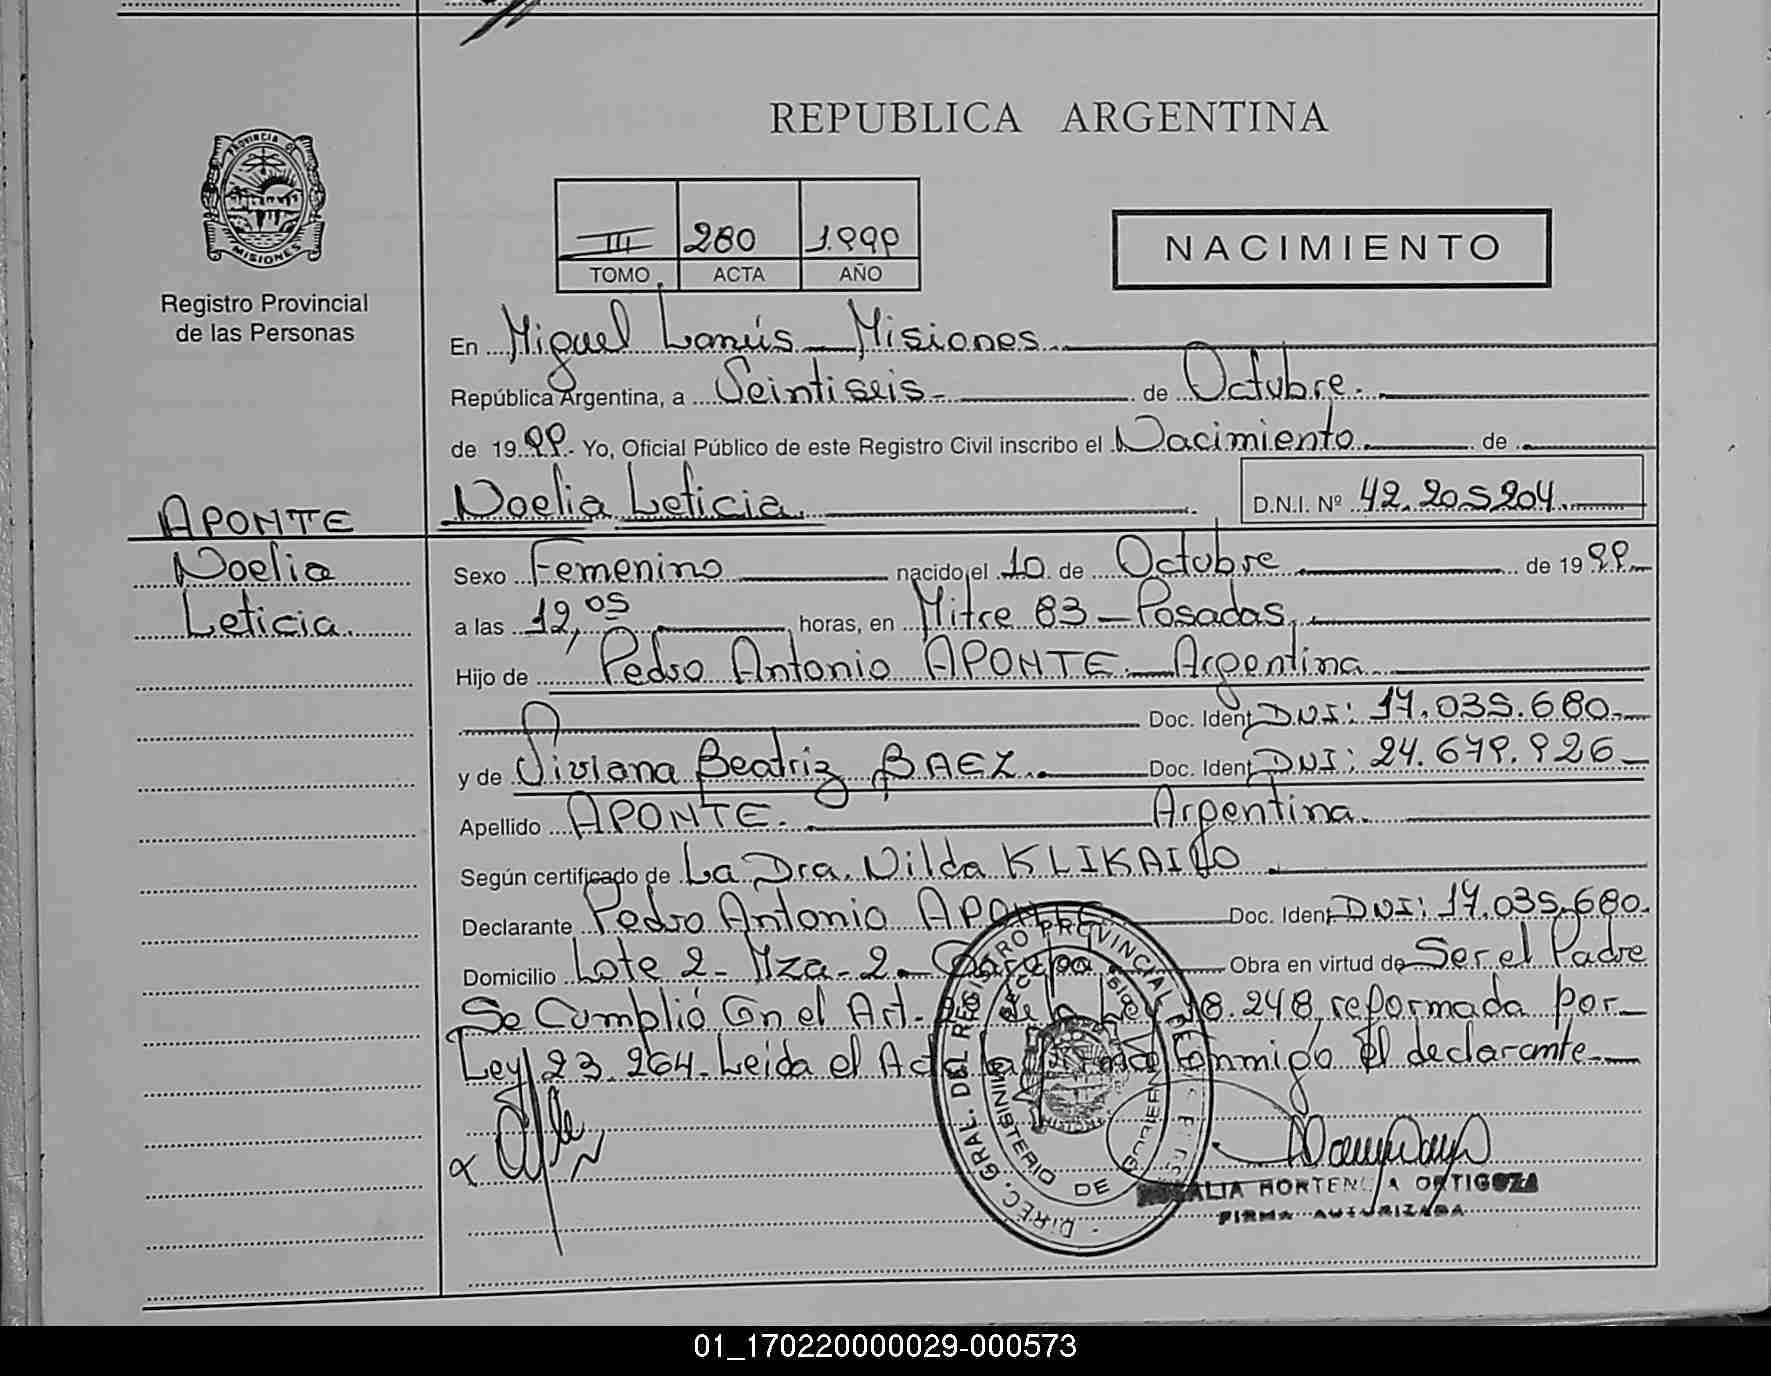 REPUBLICA ARGENTINA
PROVINCIA DE
MISIONES
Registro Provincial
de las Personas
III 280 1.999
TOMO ACTA AÑO
NACIMIENTO
En Miguel Lanús - Misiones
República Argentina, a Veintiseis - de Octubre.
de 1999. Yo, Oficial Público de este Registro Civil inscribo el Nacimiento de
APONTE
Noelia
Leticia.
Noelia Leticia D.N.I. Nº 42.205.204.
Sexo Femenino nacido el 10 de Octubre de 1999
a las 12,05 horas, en Mitre 83 - Posadas.
Hijo de Pedro Antonio APONTE - Argentina
Doc. Ident. DNI: 17.035.680.-
y de Viviana Beatriz BAEZ. Doc. Ident. DNI: 24.679.926-
Apellido APONTE. Argentina.
Según certificado de La Dra. Nilda KLIKAILO
Declarante Pedro Antonio APONTE Doc. Ident. DNI: 17.035.680.
Domicilio Lote 2 - Mza - 2 - Obra en virtud de Ser el Padre
Se Cumplió Con el Art. de la Ley 18.248, reformada por
Ley 23.264. Leída el Acta la Conmigo el declarante.
DIREC. GRAL. DEL REGISTRO PROVINCIAL DE
MINISTERIO DE GOBIERNO
HORTENCIA ORTIGOZA
FIRMA AUTORIZADA
01_170220000029-000573